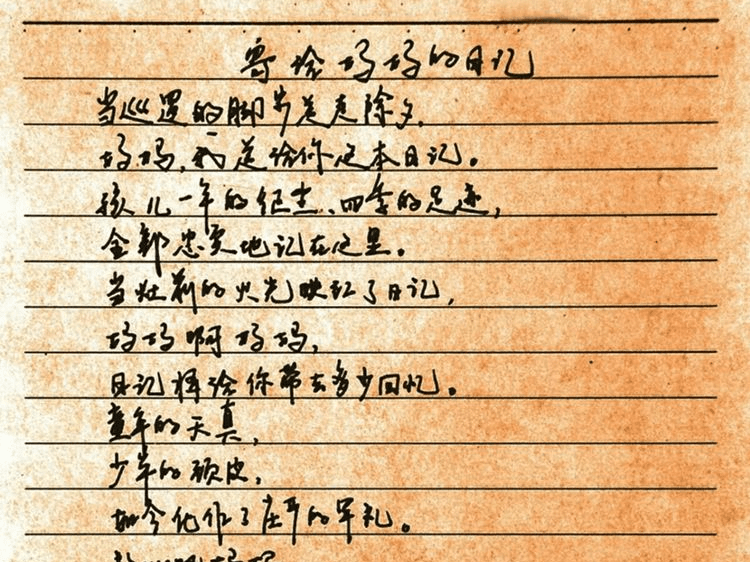 寄给妈妈的日记
当巡逻的脚步送走除夕,
妈妈,我送给你这本日记。
孩儿一年的纪念、四季的足迹,
全都忠实地记在这里。
当灶前的火光映红了日记,
妈妈啊妈妈,
日记将给你带去多少回忆。
童年的天真,
少年的顽皮,
如今化作了庄严的军礼。